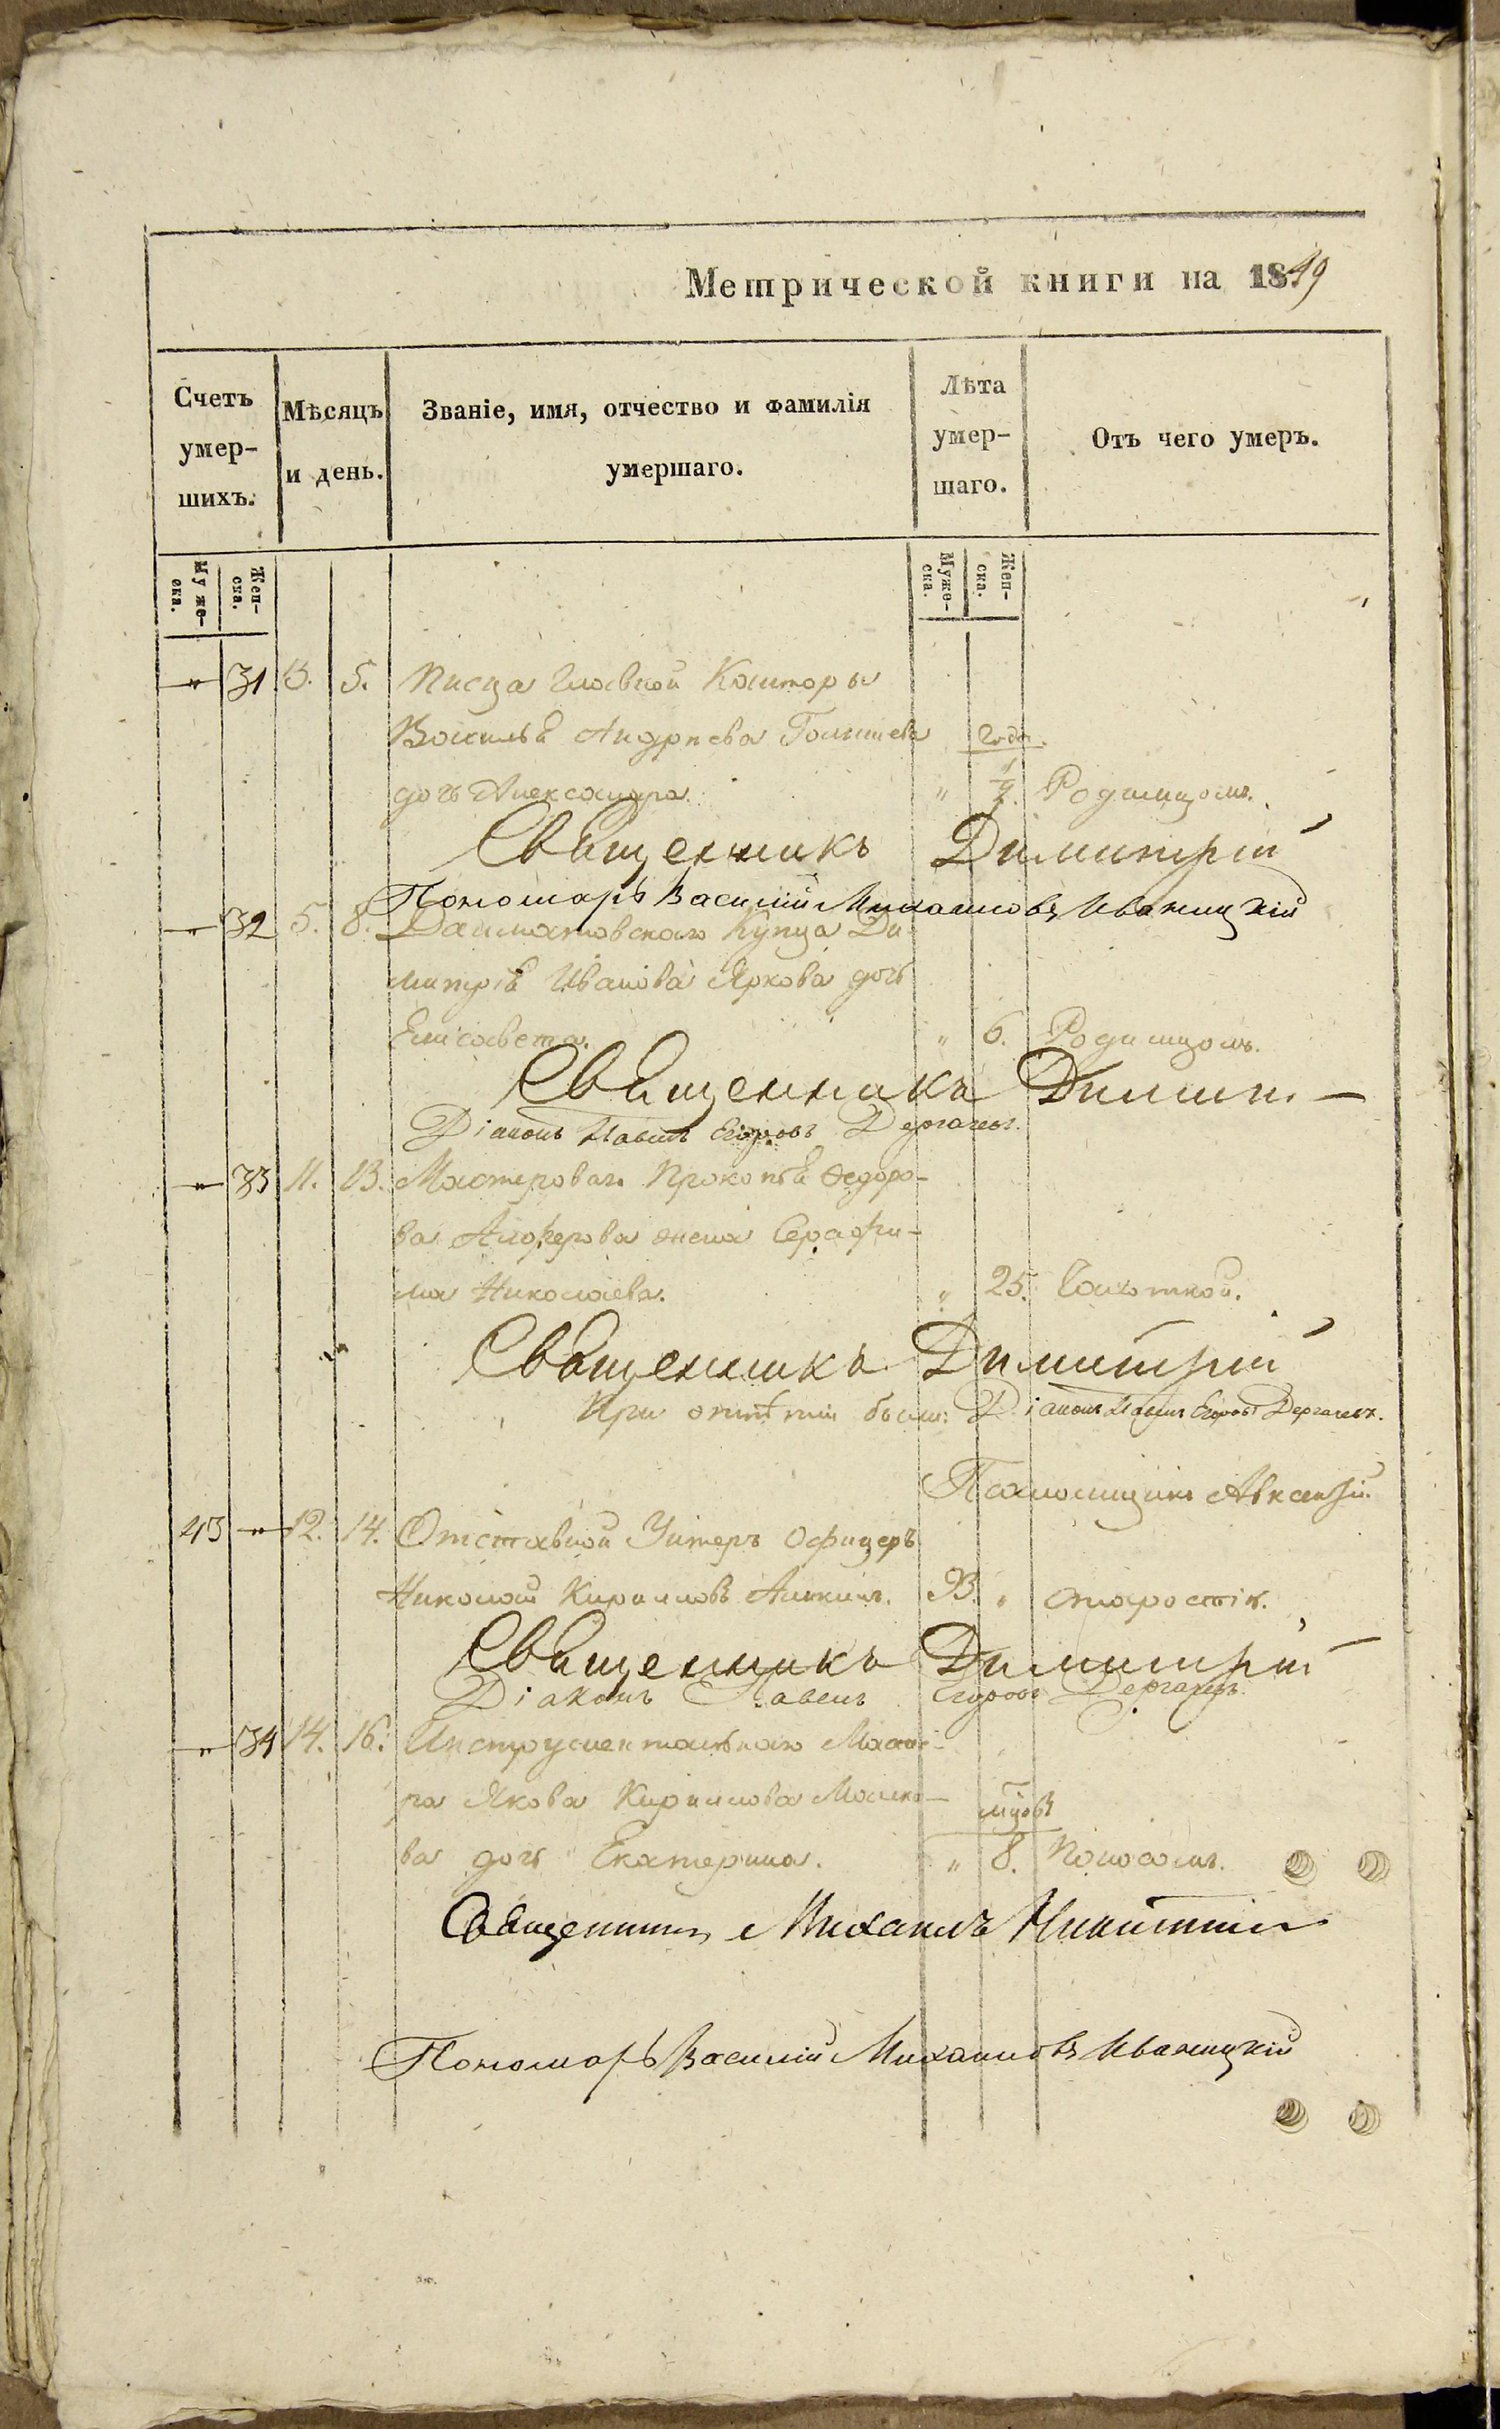 Метрической книги на 1849
Счетъ умер- шихъ.
Мѣсяцъ и день.
Званіе, имя, отчество и фамилія умершаго.
Лѣта умер- шаго.
Отъ чего умеръ.
Муже- ска. Жен- ска.
Муже- ска. Жен- ска.
" 31 3. 5. Писца Главной Конторы
Василья Андреева года.
дочь Александра. " 1/2. Родимцомъ.
Священникъ Димитрій
Пономарь Василій Михаиловъ Иваницкій
" 32 5. 8. Далматовскаго Купца Ди-
митрія Иванова Яркова дочь
Елисавета. " 6. Родимцомъ.
Священникъ Димит.
Діаконъ Павелъ Егоровъ Дергачевъ.
" 33 11. 13. Мастероваго Прокопья Ѳедоро-
ва Алферова жена Серафи-
ма Николаева. " 25. Чахоткой.
Священникъ Димитрій
При отпѣтіи были: Діаконъ Павелъ Егоровъ Дергачевъ.
43 " 12. 14. Отставной Унтеръ Офицеръ
Николай Кириловъ 93. " старостію.
Священникъ Димитрій
Діаконъ Павелъ Егоровъ Дергачевъ.
" 34 14. 16. Инструментальнаго Масте-
ра Якова Кирилова мцовъ
ва дочь Екатерина. " 8. Поносомъ.
Священникъ Михаилъ
Пономарь Василій Михаиловъ Иваницкій